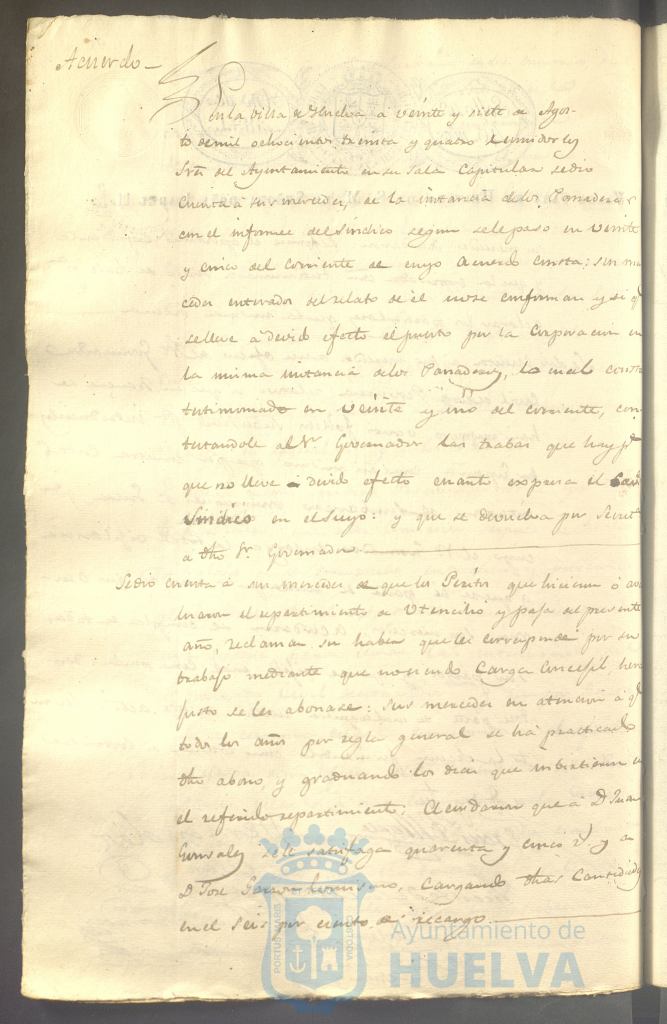 Acuerdo
En la Villa de Huelva á veinte y siete de Agos-
to de mil ochocientos treinta y quatro reunidos los
Sres del Ayuntamiento en su Sala Capitular se dió
cuenta á sus mercedes, de la instancia de los Panaderos
con el informe del Sindico segun se le paso en veinte
y cinco del corriente de cuyo acuerdo consta: sus mer
cedes enterados del relato de él no se conforman y si qe
se lleve á devido efecto el puesto por la Corporacion en
la misma instancia de los Panaderos, lo cual consta
testimoniado en veinte y uno del corriente, con
testandole al Sr. Governador las trabas que hay pa
que no lleve á devido efecto cuanto expresa el
Sindico en el suyo: y que se devuelva por Secreta
a dho Sr. Governador
Se dió cuenta á sus mercedes de que los Peritos que hicieron ó eva
luaron el repartimiento de Utencilio y paja del presente
año, reclaman su haber que les corresponde por su
trabajo mediante que no siendo Carga Concejil hera
justo se les abonase: sus mercedes en atencion á qe
todos los años por regla general se há practicado
dho abono, y graduando los dias que imbirtieron en
el referido repartimiento; Acordaron que á D. Juan
Gonsales se le satisfaga quarenta y cinco rs y a
D. José lo mismo, Cargando dhas Cantidades
en el seis por ciento de recargo.
PORTUS MARIS
CUSTODIA
Ayuntamiento de
HUELVA